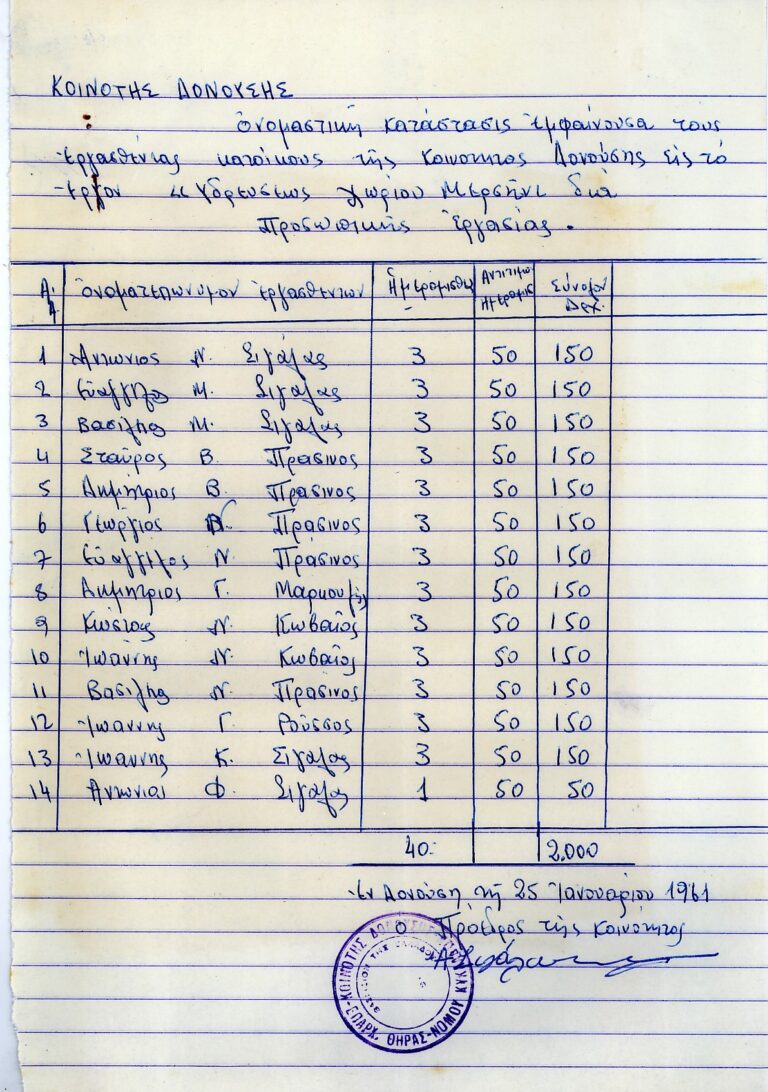 ΚΟΙΝΟΤΗΣ ΔΟΝΟΥΣΗΣ
Ὀνομαστική κατάστασις ἐμφαίνουσα τους
ἐργασθέντας κατοίκους τῆς Κοινότητος Δονούσης εἰς τό
ἔργον "Υδρεύσεως χωρίου Μερσήνι διά
Προσωπικῆς Ἐργασίας.
Α.Α Ὀνοματεπώνυμον ἐργασθέντων Ἡμερομίσθια Αντίτιμον Ημερομις Σύνολον Δρχ.
1 Αντώνιος Ν. Σιγάλας 3 50 150
2 Εὐάγγελος Μ. Σιγάλας 3 50 150
3 Βασίλης Μ. Σιγάλας 3 50 150
4 Σταῦρος Β. Πράσινος 3 50 150
5 Δημήτριος Β. Πράσινος 3 50 150
6 Γεώργιος Πράσινος 3 50 150
7 Εὐάγγελος Ν. Πράσινος 3 50 150
8 Δημήτριος Γ. Μαρκουλῆς 3 50 150
9 Κώστας Ν. Κωβαῖος 3 50 150
10 Ἰωάννης Ν. Κωβαῖος 3 50 150
11 Βασίλης Ν. Πράσινος 3 50 150
12 Ἰωάννης Γ. Ροῦσσος 3 50 150
13 Ἰωάννης Κ. Σιγάλας 3 50 150
14 Αντώνιος Φ. Σιγάλας 1 50 50
40 2.000
Ἐν Δονούσῃ τῇ 25 Ἰανουαρίου 1961
Ὁ Πρόεδρος τῆς Κοινότητος
Α. Σιγάλας
ΚΟΙΝΟΤΗΣ ΔΟΝΟΥΣΗΣ
ΕΠΑΡΧ. ΘΗΡΑΣ-ΝΟΜΟΥ ΚΥΚΛ